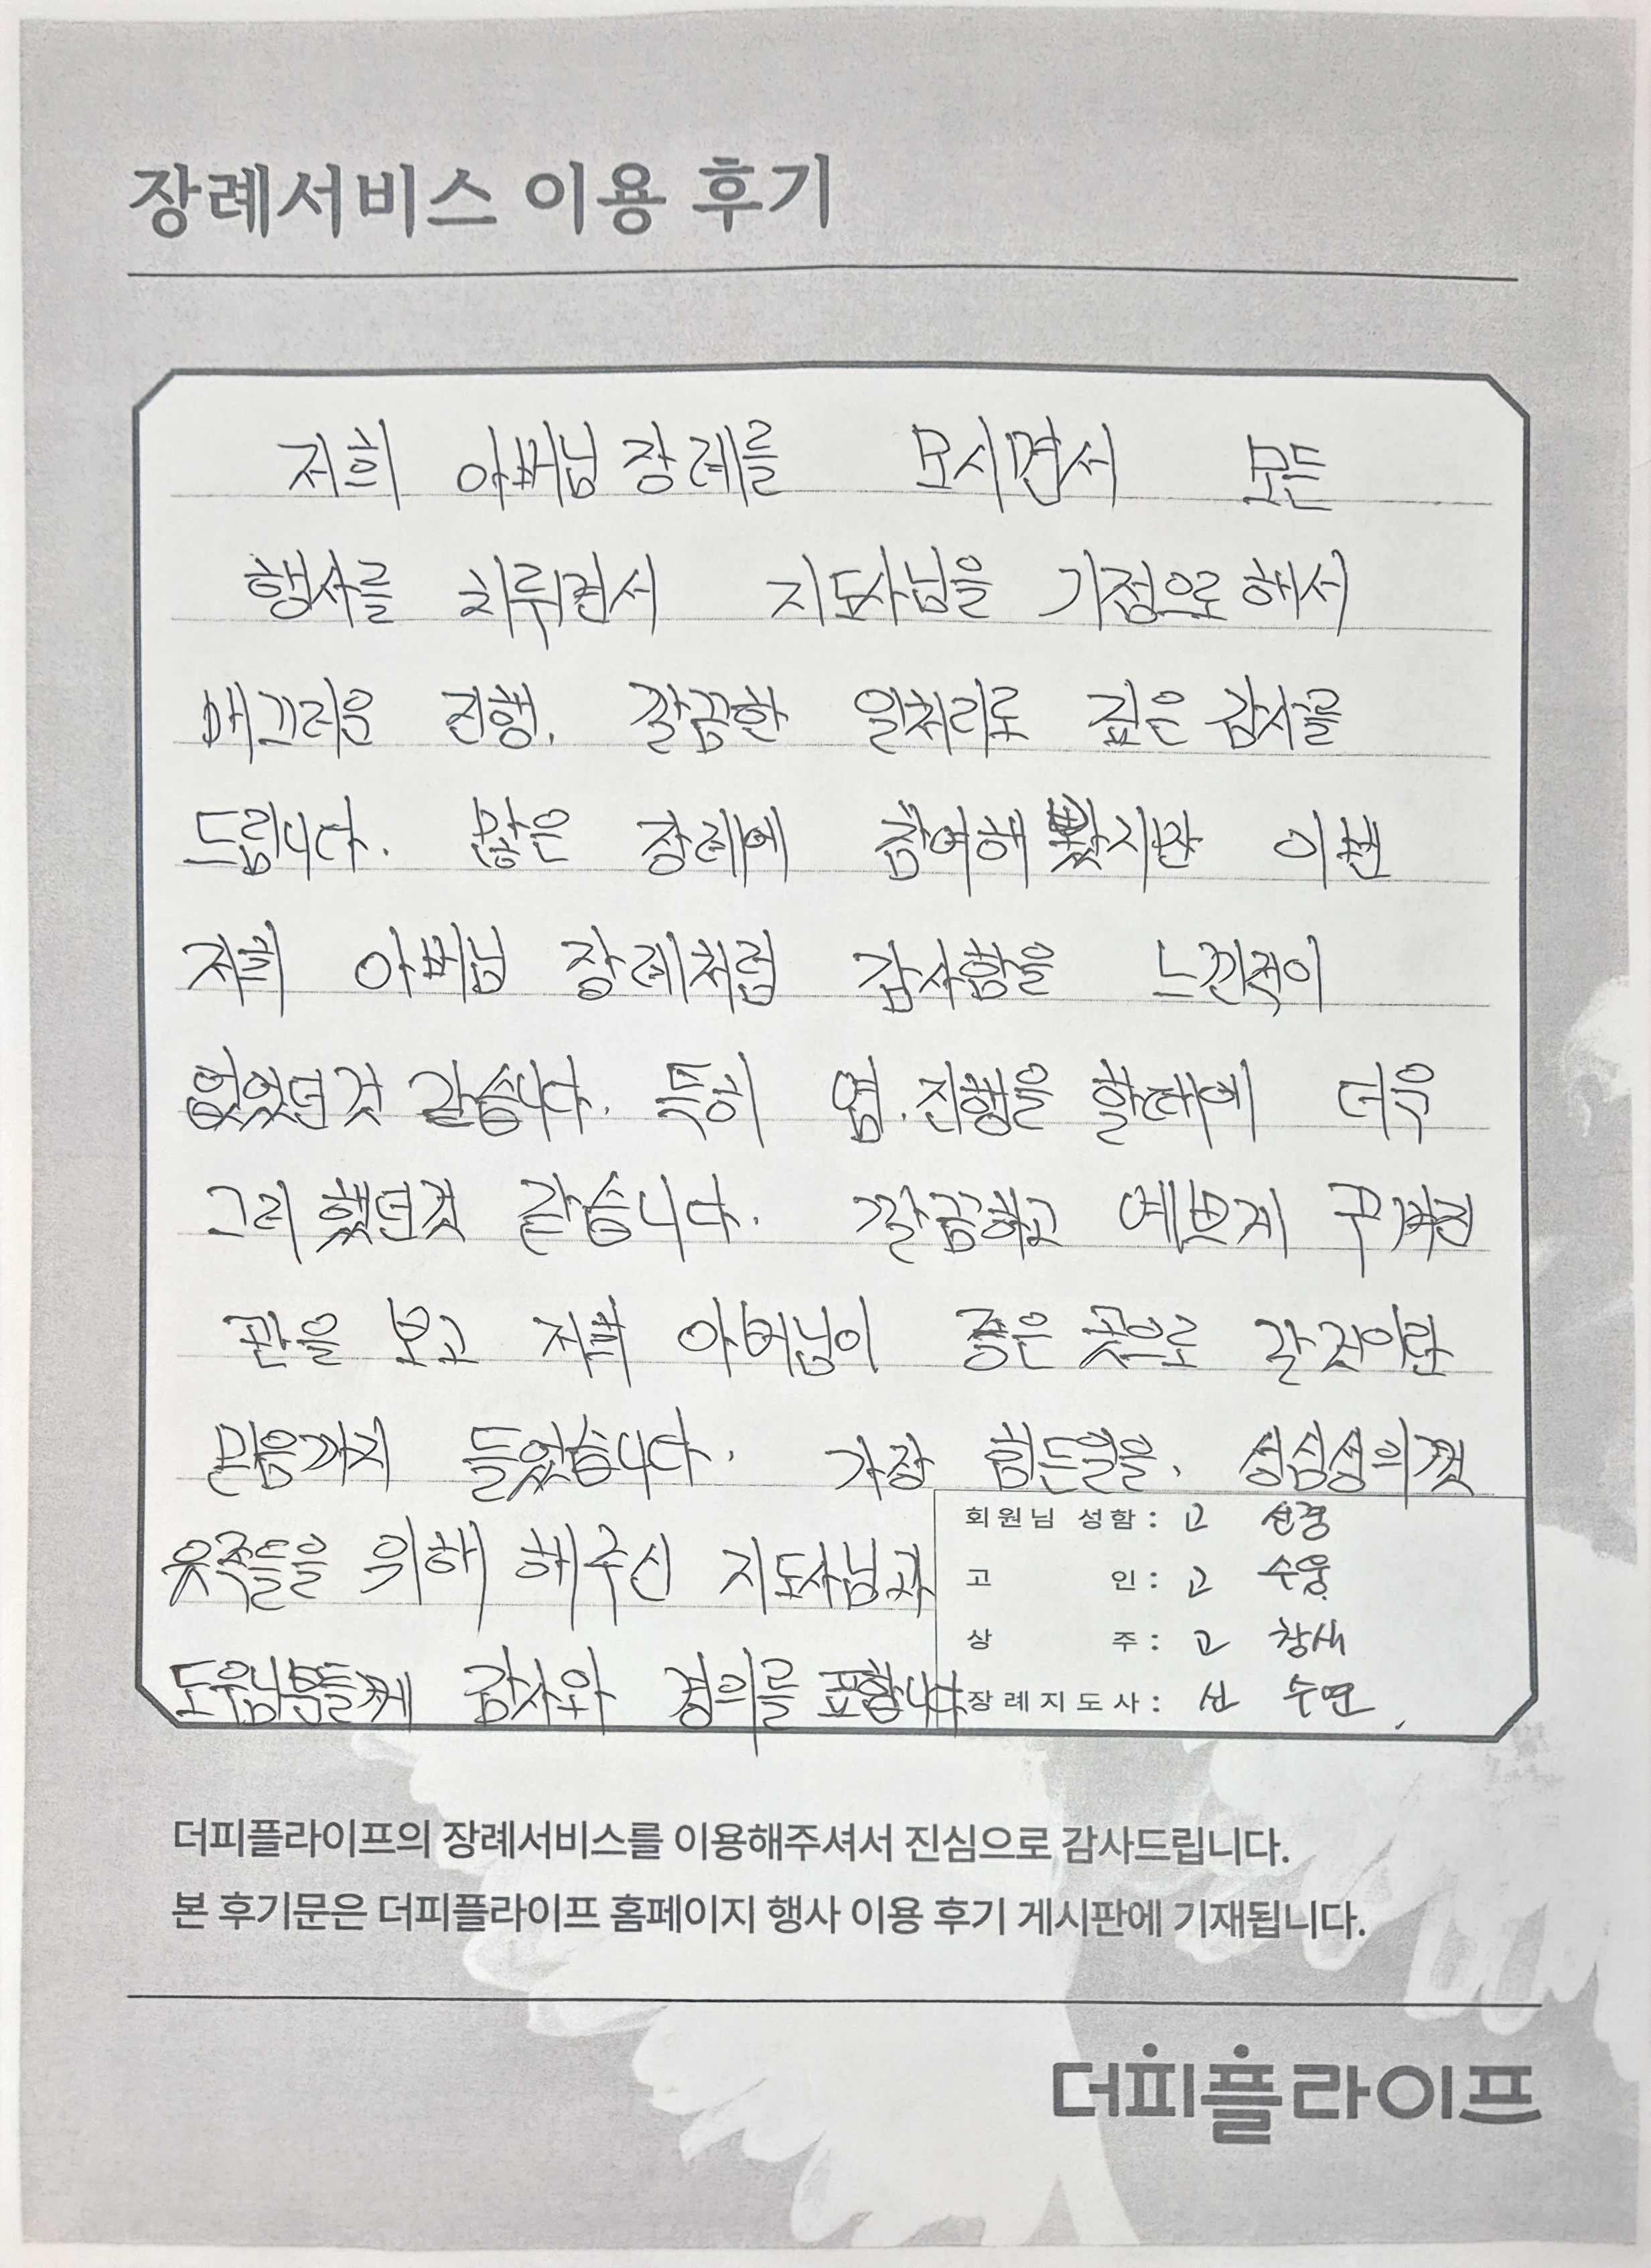 장례서비스 이용 후기
저희 아버님 장례를 모시면서 모든
행사를 치뤄면서 지도사님을 기점으로 해서
매끄러운 진행, 깔끔한 일처리로 깊은 감사를
드립니다. 많은 장례에 참여해 봤지만 이번
저희 아버님 장례처럼 감사함을 느낀적이
없었던것 같습니다. 특히 염.진행을 할때에 더욱
그러했던것 같습니다. 깔끔하고 예쁘게 꾸며진
관을 보고 저희 아버님이 좋은 곳으로 갈것이란
믿음까지 들었습니다. 가장 힘든일을, 성심성의껏
유족들을 위해 해주신 지도사님과
도우님분들께 감사와 경의를 표합니다.
회원님 성함: 고 선경
고 인: 고 수웅
상 주: 고 창새
장례지도사: 신 수면
더피플라이프의 장례서비스를 이용해주셔서 진심으로 감사드립니다.
본 후기문은 더피플라이프 홈페이지 행사 이용 후기 게시판에 기재됩니다.
더피플라이프